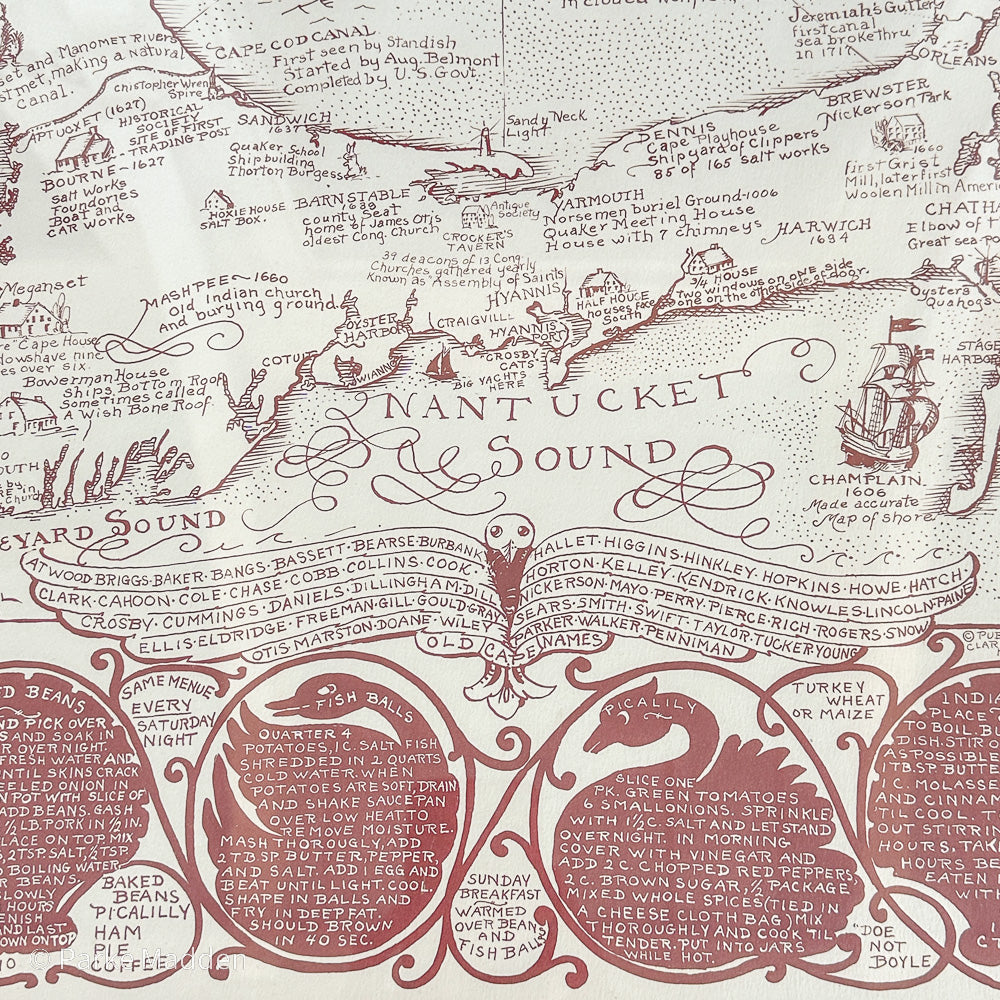 Included whole
Jeremiah's Gutter
first canal
sea broke thru
in 1717
ORLEANS
and Manomet River
met, making a natural
Canal.
CAPE COD CANAL
First seen by Standish
Started by Aug. Belmont
Completed by U.S. Govt.
Christopher Wren
Spire
APTUCXET (1627)
HISTORICAL
SOCIETY
SITE OF FIRST
TRADING POST
BOURNE - 1627
Salt Works
Foundries
Boat and
Car Works
SANDWICH
1637
Quaker School
Ship building
Thorton Burgess
HOXIE HOUSE
SALT BOX.
Sandy Neck
Light.
DENNIS
Cape Playhouse
Shipyard of Clippers
85 of 165 salt works
BREWSTER
Nickerson Park
1660
first Grist
Mill, later first
Woolen Mill in Ameri
BARNSTABLE
County Seat
home of James Otis
oldest Cong. Church
Antique
Society
CROCKER'S
TAVERN
39 deacons of 13 Cong.
Churches, gathered yearly
Known as "Assembly of Saints"
YARMOUTH
Norsemen Buriel Ground-1006
Quaker Meeting House
House with 7 chimneys
HARWICH
1694
CHATHA
Elbow of t
Great sea po
Oysters
Quahogs
STAGE
HARBOR
Megansett
Cape House
dows have nine
es over six.
MASHPEE ~ 1660
Old Indian church
and burying ground
Bowerman House
Ships Bottom Roof
Sometimes called
A Wish Bone Roof.
HYANNIS
HALF HOUSE
houses face
South
3/4 HOUSE
Two windows on one side
one on the other side of door.
OYSTER
HARBOR
CRAIGVILLE
HYANNIS
PORT
CROSBY
CATS
BIG YACHTS
HERE
COTUIT
WIANNO
NANTUCKET
SOUND
CHAMPLAIN.
1606
Made accurate
Map of shore
OUTH
EYARD SOUND
ATWOOD·BRIGGS·BAKER·BANGS·BASSETT·BEARSE·BURBANK
CLARK·CAHOON·COLE·CHASE·COBB·COLLINS·COOK·
CROSBY·CUMMINGS·DANIELS·DILLINGHAM·DILL
ELLIS·ELDRIDGE·FREEMAN·GILL·GOULD·GRAY
OTIS·MARSTON·DOANE·WILEY
HALLET·HIGGINS·HINKLEY·HOPKINS·HOWE·HATCH
HORTON·KELLEY·KENDRICK·KNOWLES·LINCOLN·PAINE
NICKERSON·MAYO·PERRY·PIERCE·RICH·ROGERS·SNOW
SEARS·SMITH·SWIFT·TAYLOR·TUCKER·YOUNG
PARKER·WALKER·PENNIMAN
OLD CAPE NAMES
© PUB
CLAR
ED BEANS
ND PICK OVER
S AND SOAK IN
R OVER NIGHT.
FRESH WATER AND
NTIL SKINS CRACK
EELED ONION IN
N POT WITH SLICE OF
ADD BEANS. GASH
1/2 LB. PORK IN 1/2 IN.
LACE ON TOP. MIX
2 TSP. SALT, 1/2 TSP.
BOILING WATER
R BEANS.
SLOWLY
HOURS
ENISH
AND LAST
OWN ON TOP
SAME MENUE
EVERY
SATURDAY
NIGHT
BAKED
BEANS
PICALILLY
HAM
PIE
COFFEE
FISH BALLS
QUARTER 4
POTATOES, 1 C. SALT FISH
SHREDDED IN 2 QUARTS
COLD WATER. WHEN
POTATOES ARE SOFT, DRAIN
AND SHAKE SAUCE PAN
OVER LOW HEAT, TO
REMOVE MOISTURE.
MASH THOROUGLY, ADD
2 TB SP BUTTER, PEPPER,
AND SALT. ADD 1 EGG AND
BEAT UNTIL LIGHT. COOL.
SHAPE IN BALLS AND
FRY IN DEEP FAT.
SHOULD BROWN
IN 40 SEC.
SUNDAY
BREAKFAST
WARMED
OVER BEAN
AND
FISH BALLS
PICALILY
SLICE ONE
PK. GREEN TOMATOES
6 SMALL ONIONS. SPRINKLE
WITH 1 1/2 C. SALT AND LET STAND
OVERNIGHT. IN MORNING
COVER WITH VINEGAR AND
ADD 2 C. CHOPPED RED PEPPERS,
2 C. BROWN SUGAR, 1/2 PACKAGE
MIXED WHOLE SPICES (TIED IN
A CHEESE CLOTH BAG) MIX
THOROUGHLY AND COOK 'TIL
TENDER. PUT INTO JARS
WHILE HOT.
TURKEY
WHEAT
OR MAIZE
"DOE
NOT
BOYLE
INDI
PLACE
TO BOIL. BU
DISH. STIR O
AS POSSIBLE
1 TB. SP. BUTTE
C. MOLASSE
AND CINNAM
TIL COOL. T
OUT STIRRIN
HOURS, TAK
HOURS BE
EATEN
WIT
© Parke Madden